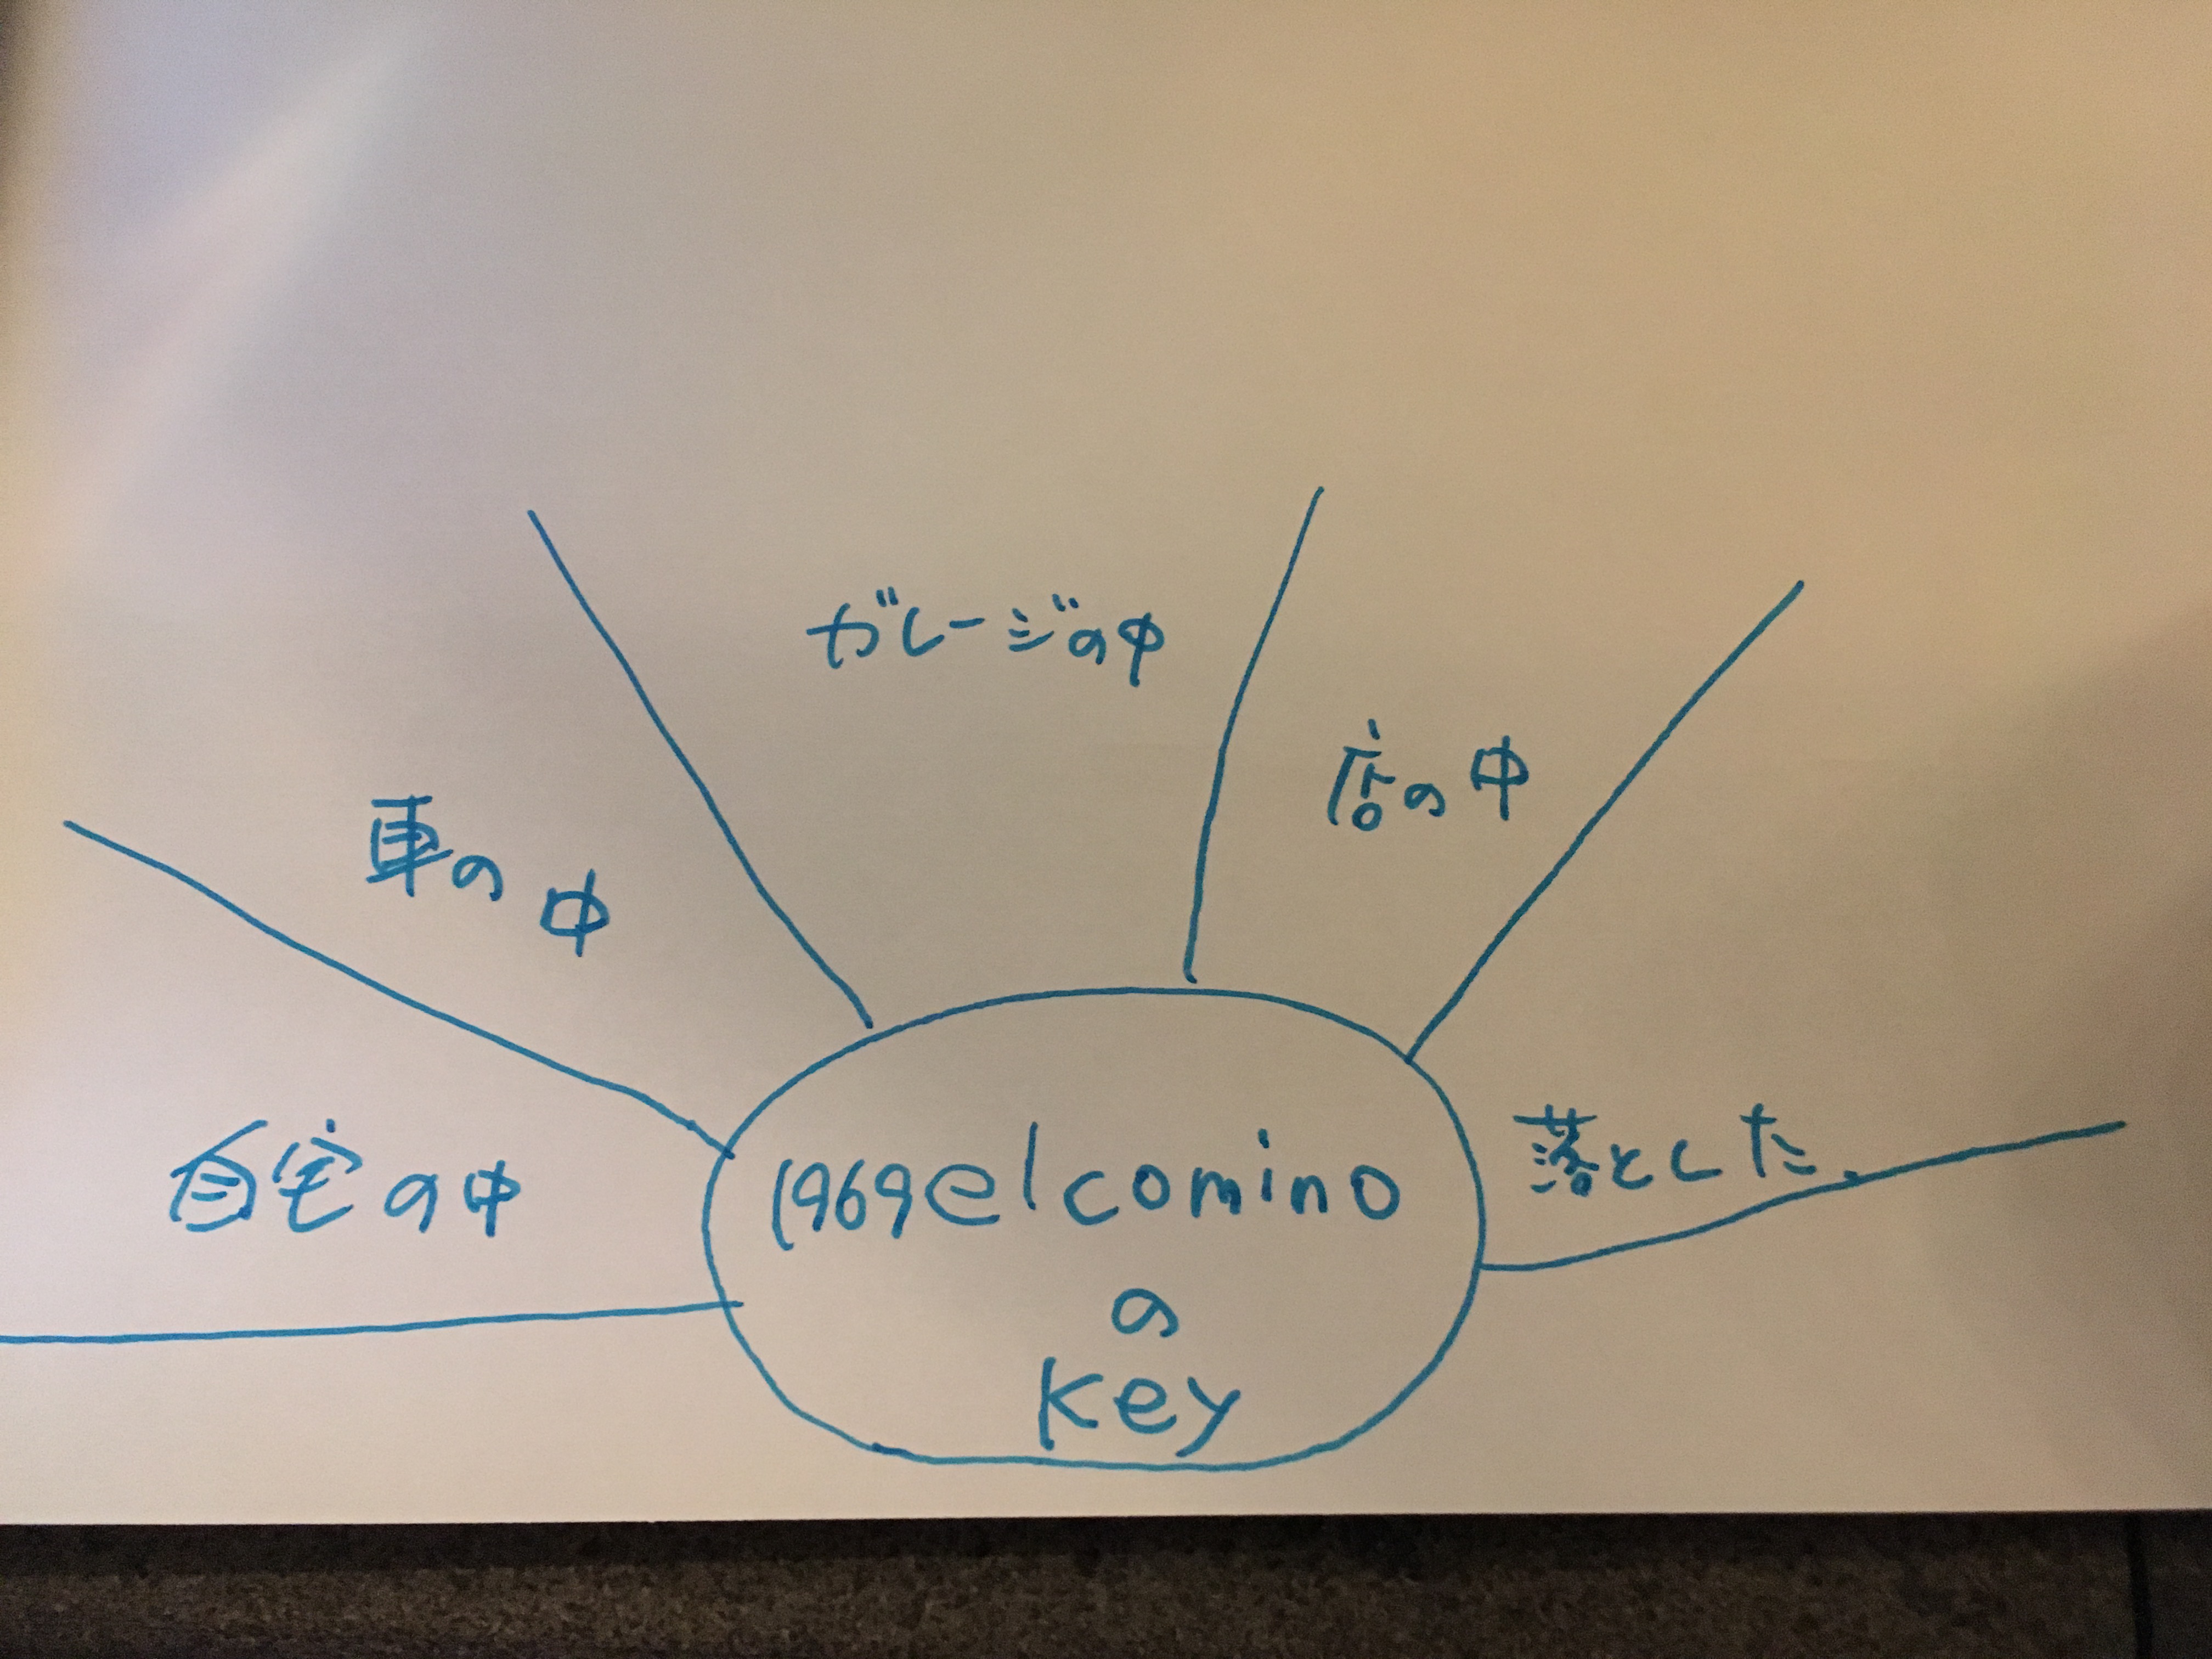 ガレージの中
店の中
車の中
自宅の中
落とした.
1969elcomino
の
key